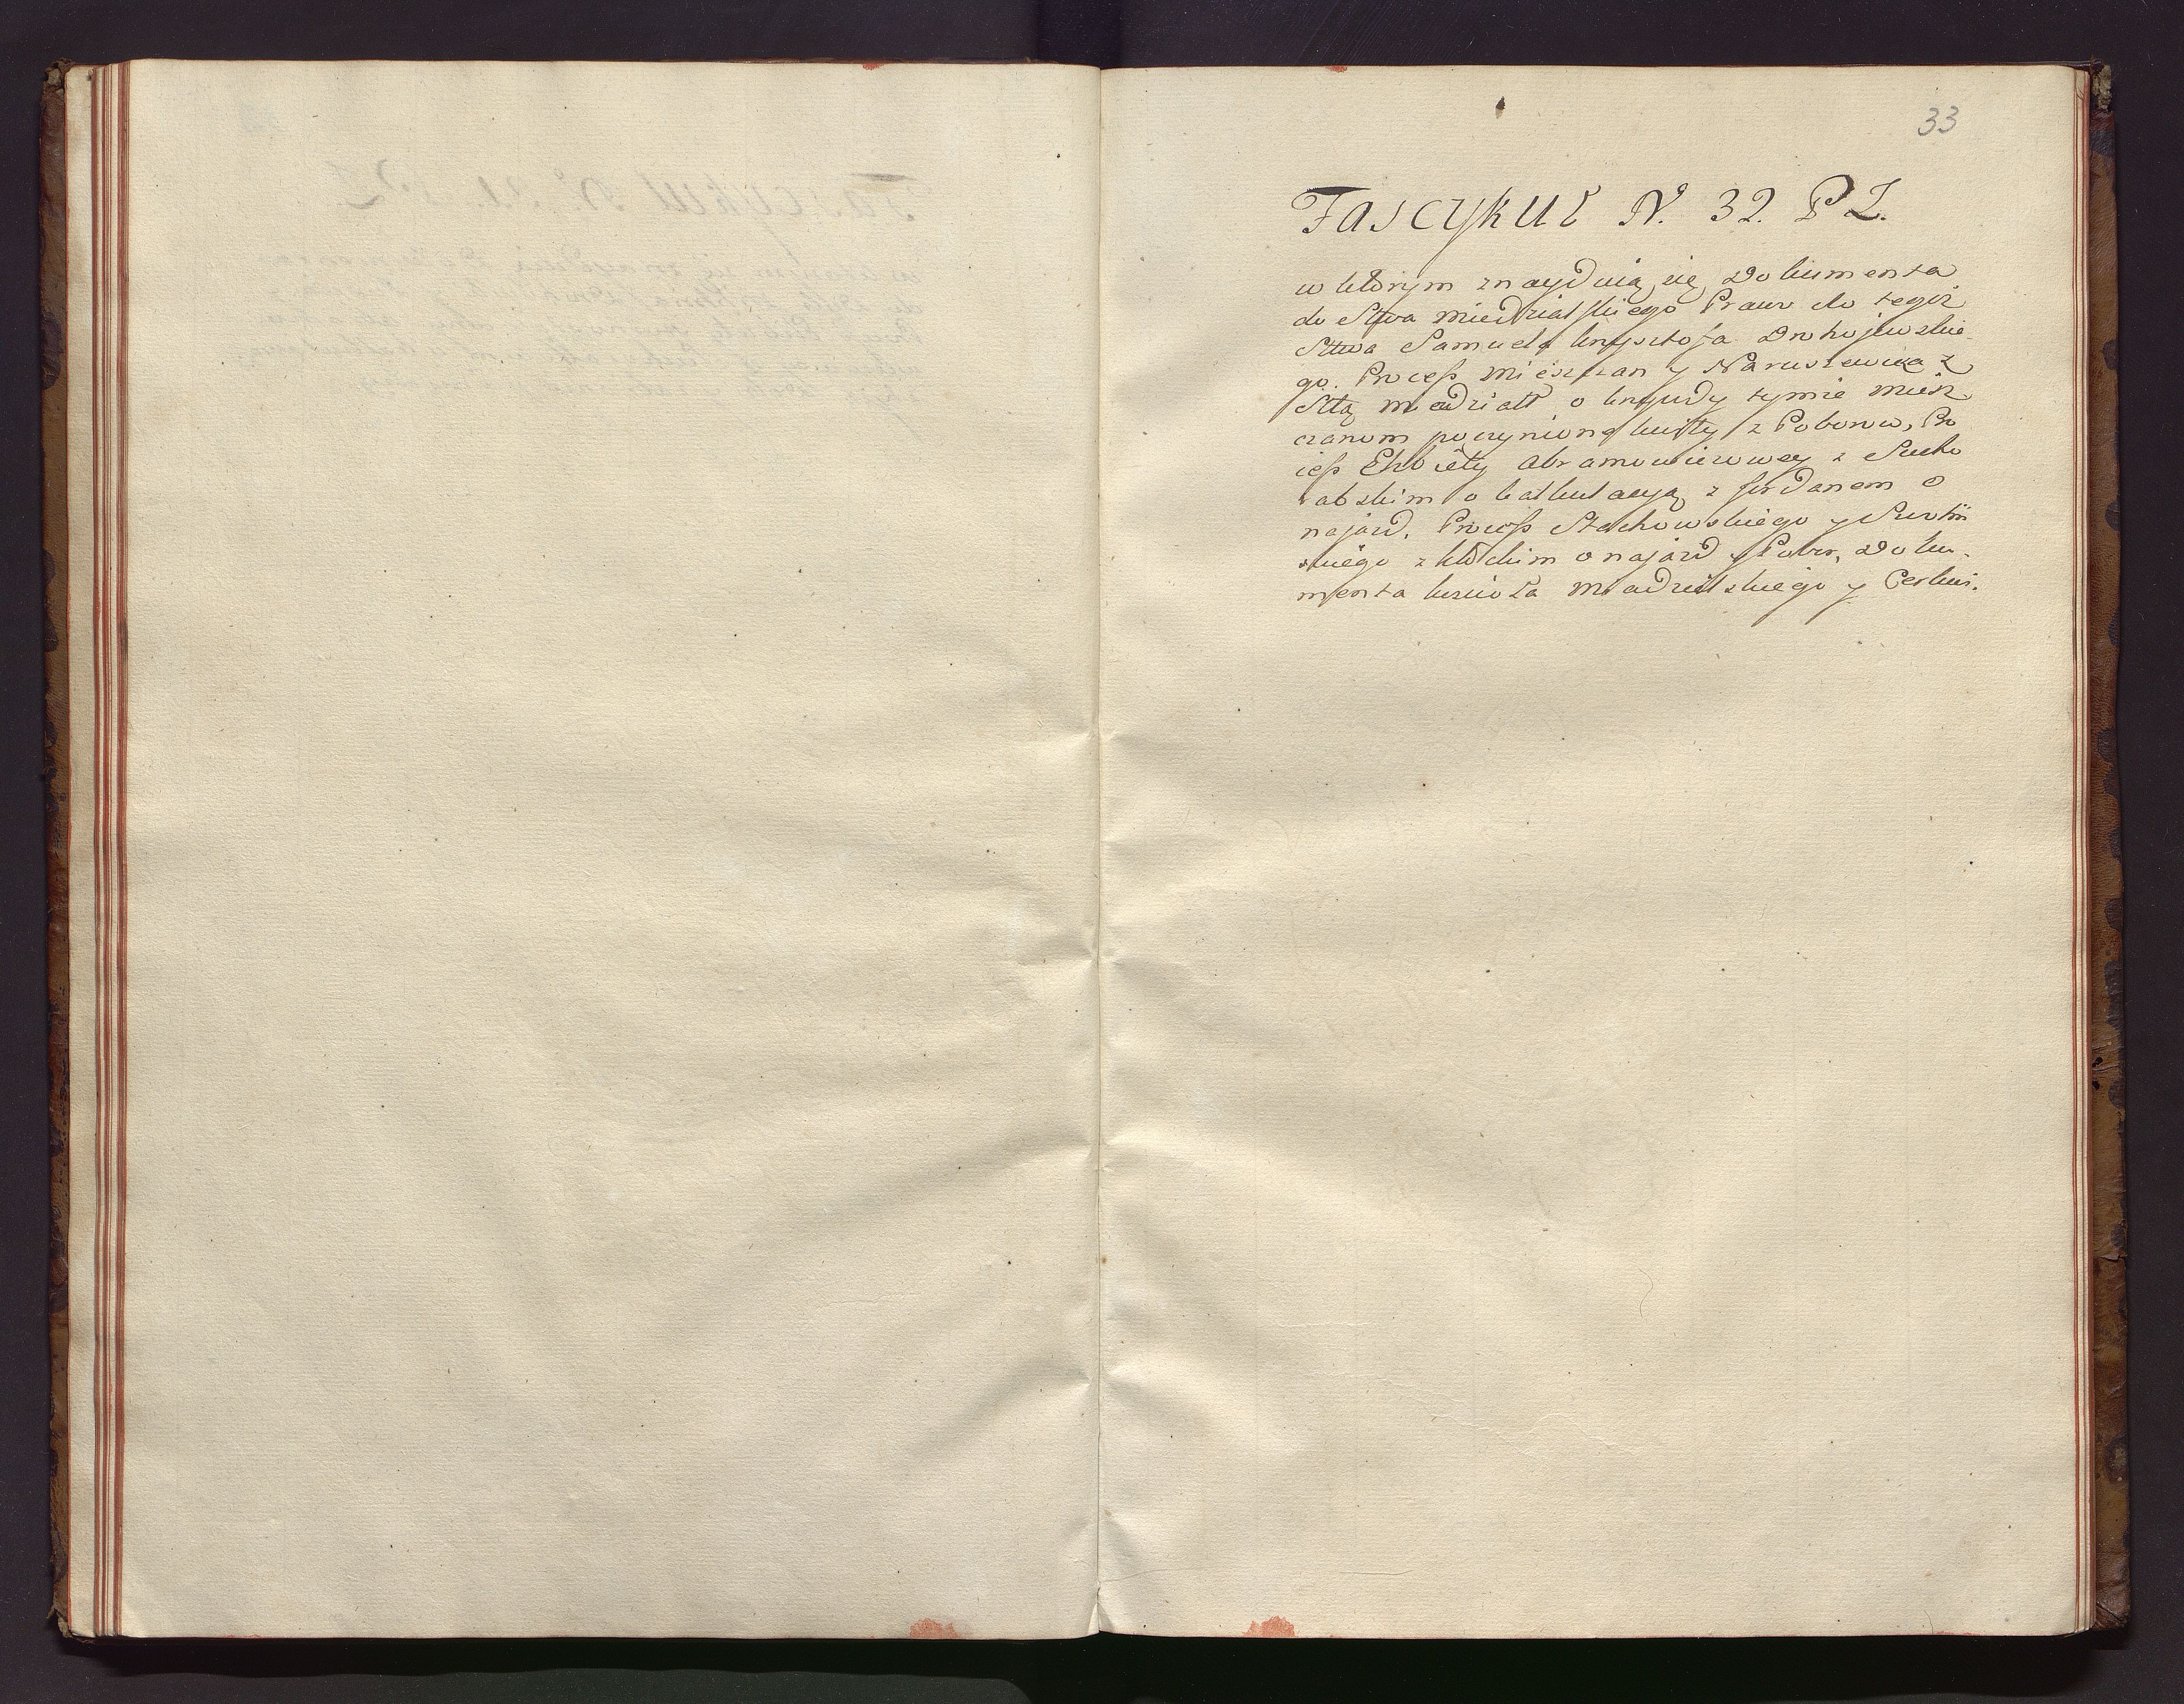 33
Fascykuł N. 32. P Z.
w którym znayduią się Dokumenta
do Sttwa Miedzialskiego Praw do tegoż
Sttwa Samuela Krysztofa Drohojewskie
go. Process Mieszczan y Naruszewicza z
Sttą Miadzioł o krzywdy tymże miesz
czanom poczynione kwity z Poborow, Pro
cess Elzbiety Abramowiczowey z Sucho
rabskim o kalkulacyą z Jordanem o
najazd. Process Stachowskiego y Surtiń
skiego z Kłockim o najazd y Pobor, Doku-
menta koscioła Miadzielskiego y Cerkwi.